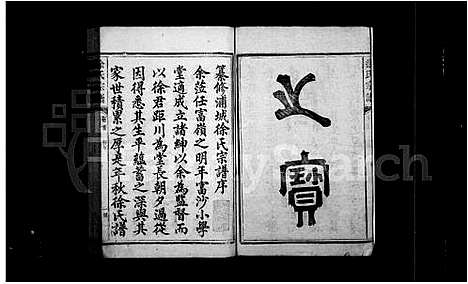 之
寶
纂修浦城徐氏宗譜序
余蒞任富嶺之明年富沙小學
堂適成立諸紳以余為監督而
以徐君距川為堂長朝夕過從
因得悉其生平蘊蓄之深與其
家世積累之厚是年秋徐氏譜